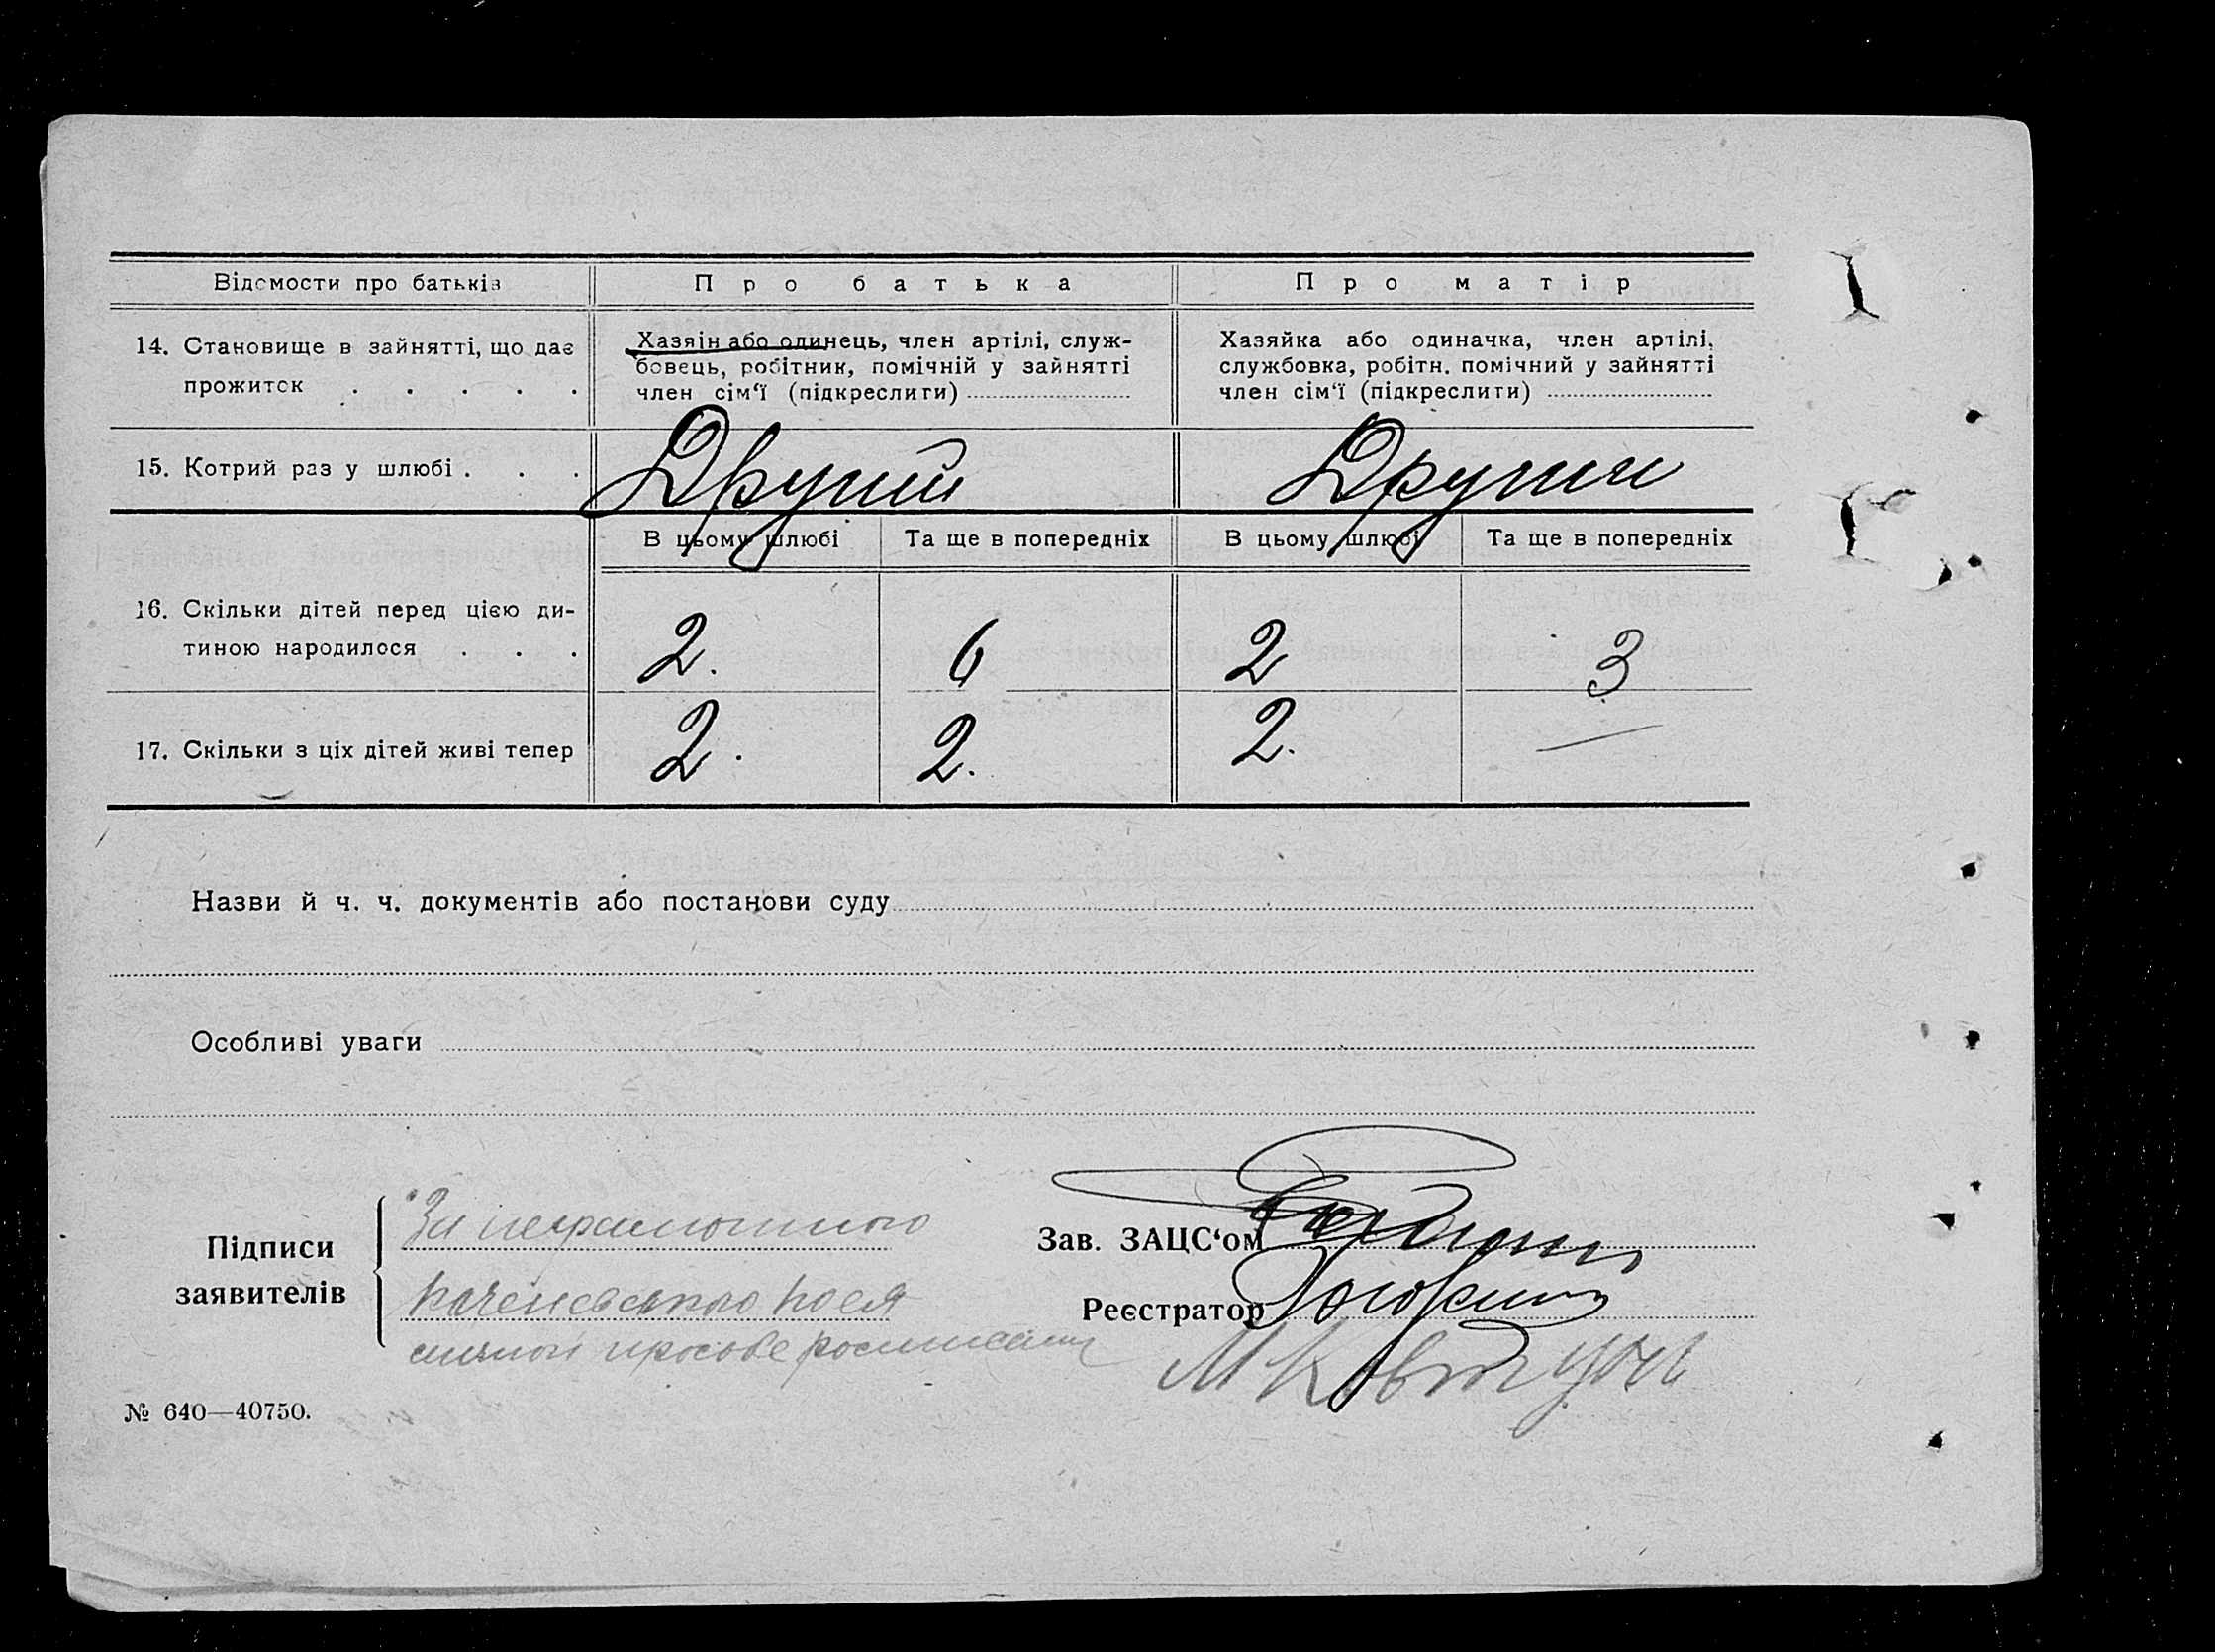 Відомости про батьків
Про батька
Про матір
14. Становище в зайнятті, що дає
прожиток . . . . .
Хазяін або одинець, член артілі, служ-
бовець, робітник, помічній у зайнятті
член сім‘ї (підкреслити)
Хазяйка або одиначка, член артілі,
службовка, робітн. помічний у зайнятті
член сім‘ї (підкреслити)
15. Котрий раз у шлюбі . . .
Другий
Другий
В цьому шлюбі
Та ще в попередніх
В цьому шлюбі
Та ще в попередніх
16. Скільки дітей перед цією ди-
тиною народилося . . .
2.
6
2
3
17. Скільки з ціх дітей живі тепер
2.
2.
2.
—
Назви й ч. ч. документів або постанови суду
Особливі уваги
Підписи
заявителів
За неграмотного
Зав. ЗАЦС‘ом
Реєстратор
МКовтун
№ 640—40750.